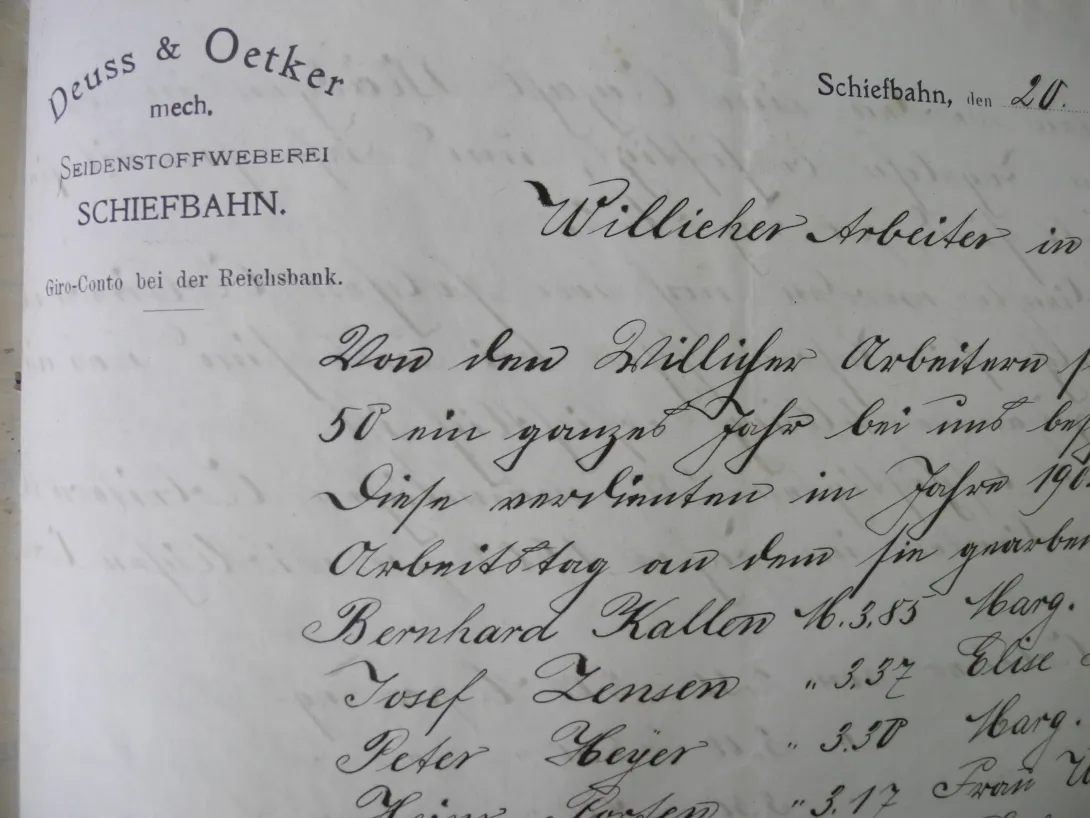 Deuss & Oetker
mech.
SEIDENSTOFFWEBEREI
SCHIEFBAHN.
Giro-Conto bei der Reichsbank.
Schiefbahn, den 20.
Willicher Arbeiter in
Von den Willicher Arbeitern
50 ein ganzes Jahr bei uns
Diese verdienten im Jahre 190
Arbeitstag an dem sie gearbei
Bernhard Kallen M. 3.85 Marg.
Josef Zensen " 3.37 Elise
Peter Heyer " 3.30 Marg.
Heinr. Porten " 3.17 Frau